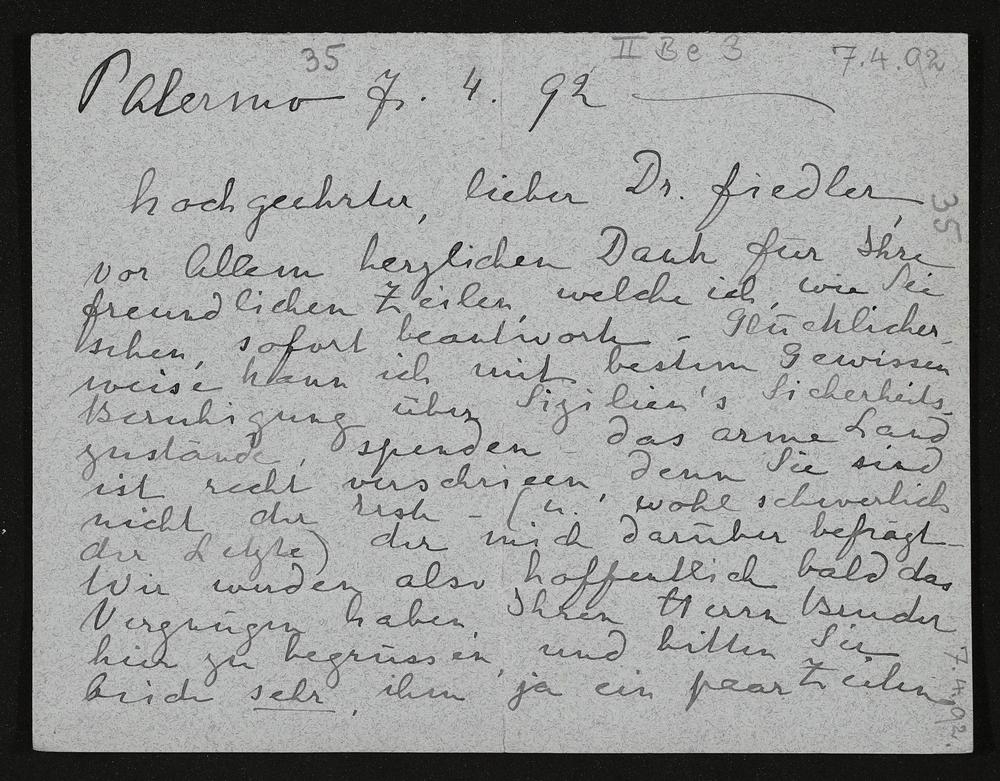 35
II Be 3
7.4.92
Palermo 7. 4. 92
hochgeehrter, lieber Dr. Fiedler,
35
vor Allem herzlichen Dank für Ihre
freundlichen Zeilen, welche ich, wie Sie
sehen, sofort beantworte - Glücklicher-
weise kann ich mit bestem Gewissen
Beruhigung über Sizilien's Sicherheits-
zustände, spenden - das arme Land
ist recht verschrieen, denn Sie sind
nicht der Erste - (u. wohl schwerlich
der Letzte) der mich darüber befragt -
Wir werden also hoffentlich bald das
Vergnügen haben, Ihren Herrn Bruder
hier zu begrüssen, und bitten Sie
beide sehr, ihm ja ein paar Zeilen
7.4.92.